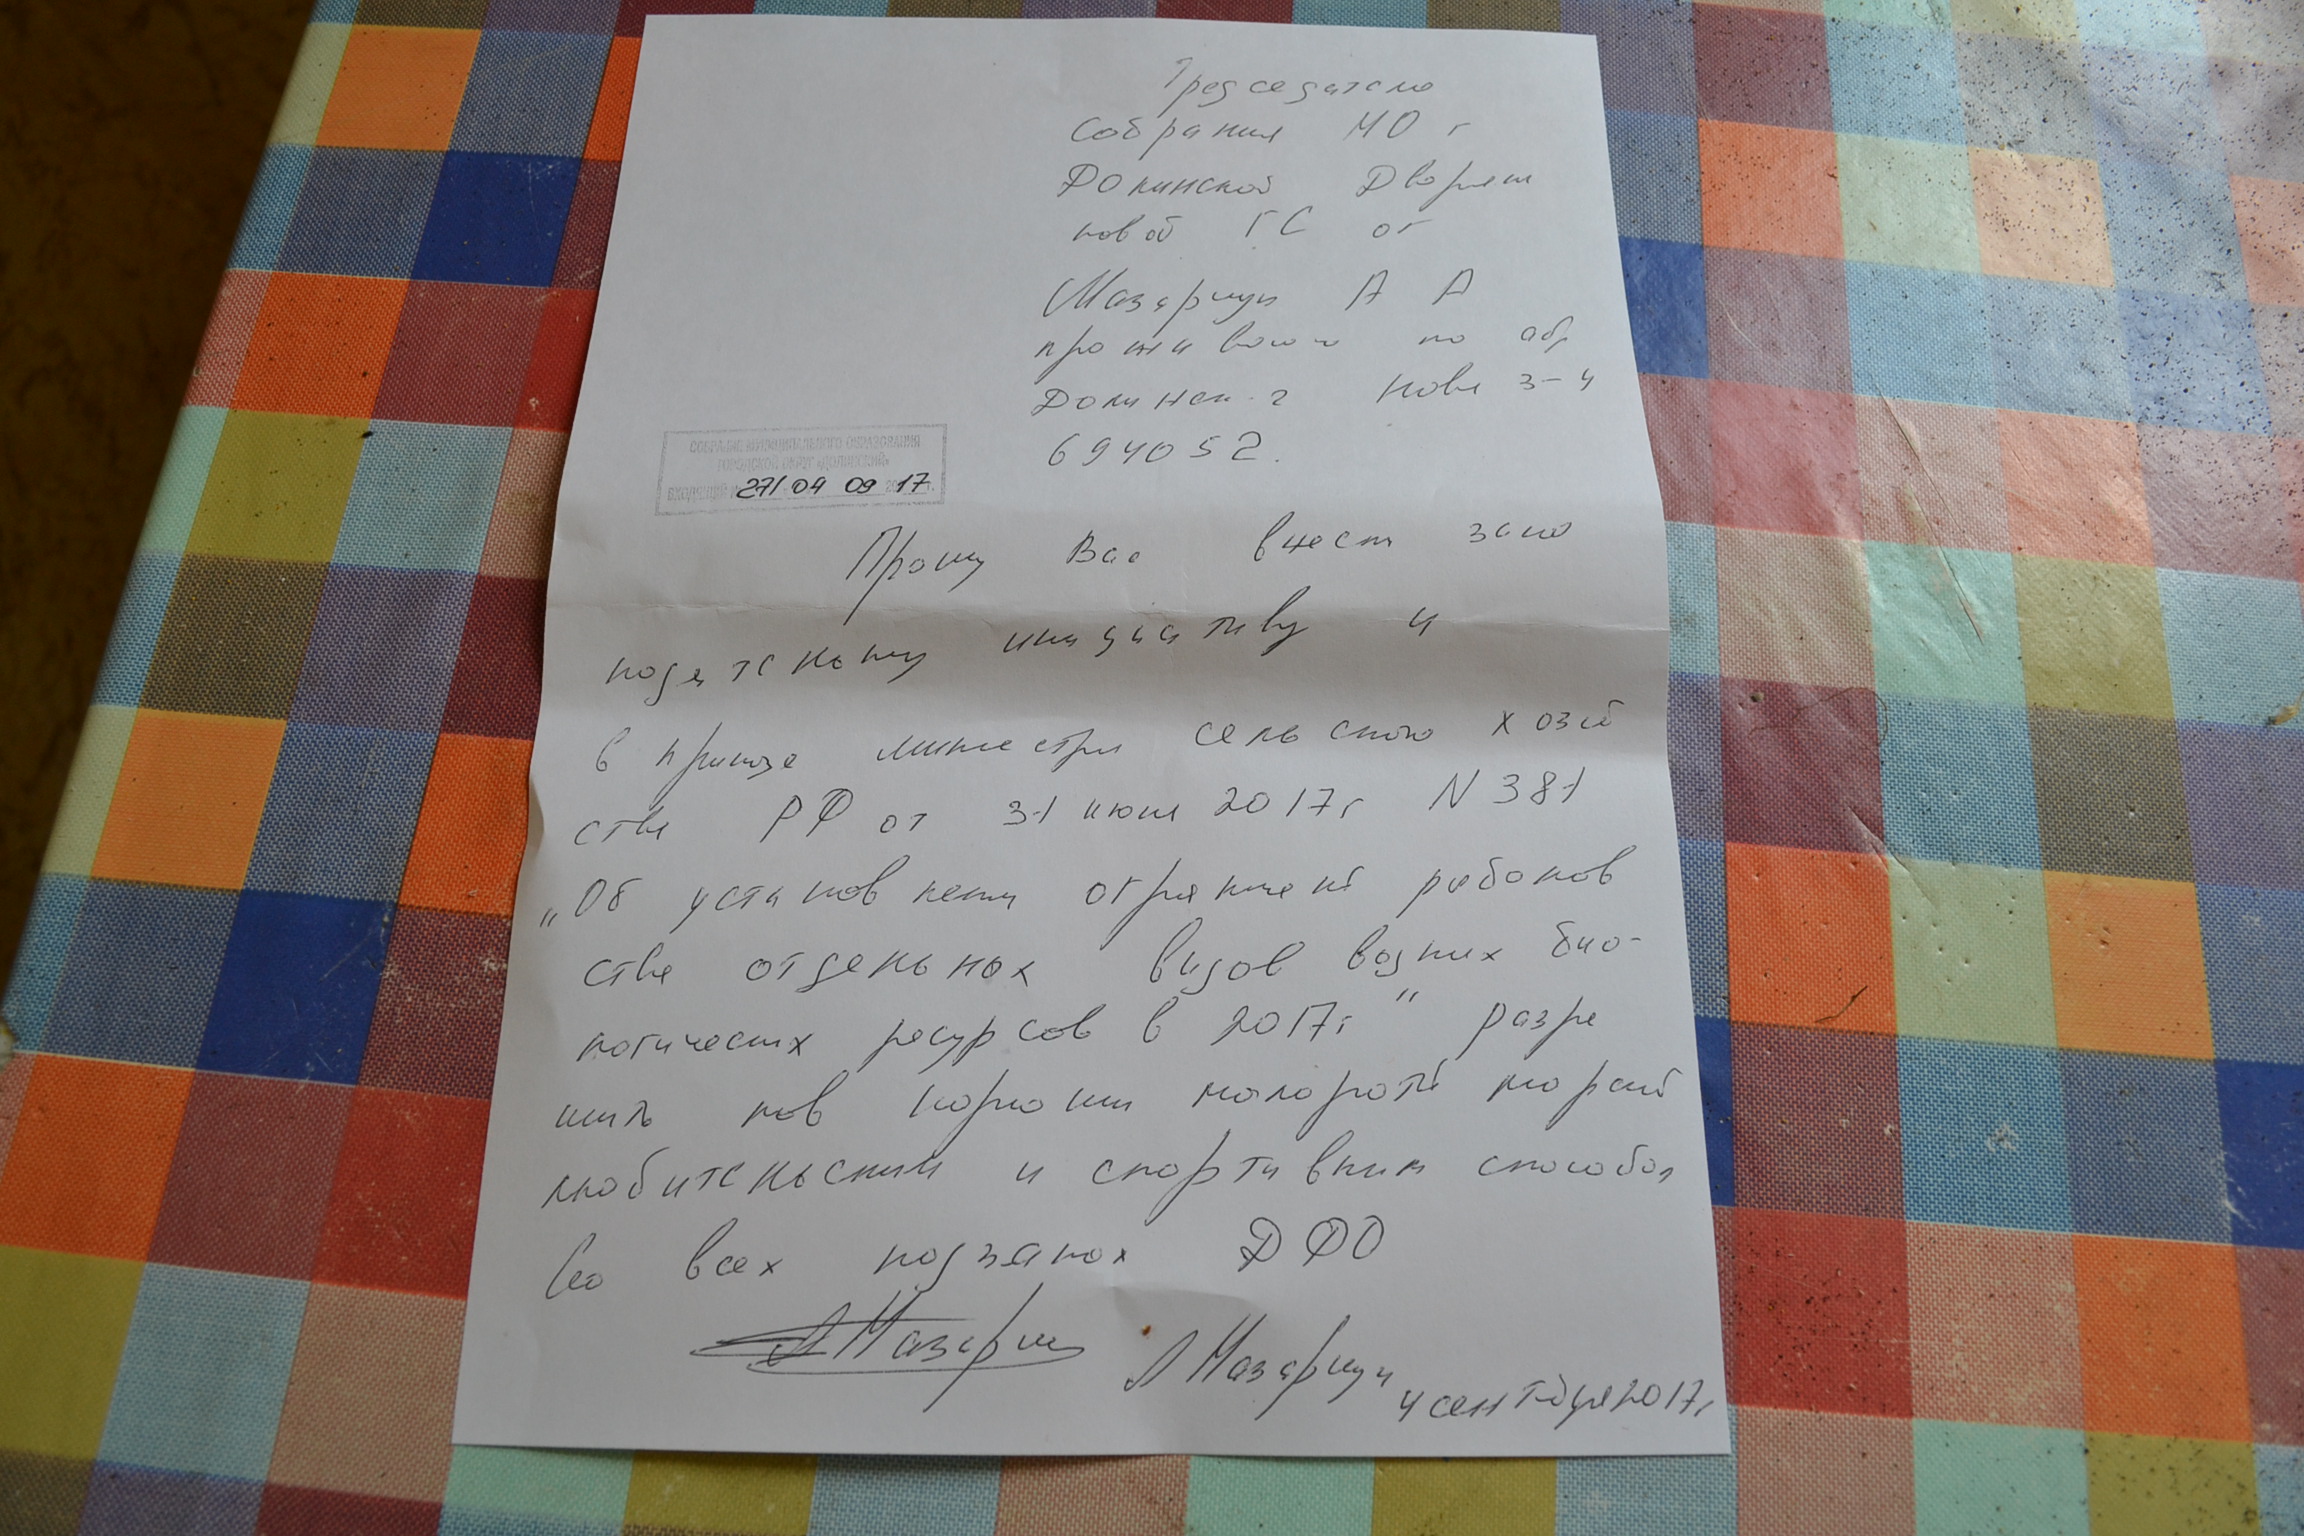 Председателю
Собрания МО г
Долинской Дворян
новой ГС от
Мазарчук А А
проживающ по адр
Долинск-2 Нов 3-4
694052.
СОБРАНИЕ МУНИЦИПАЛЬНОГО ОБРАЗОВАНИЯ
ГОРОДСКОЙ ОКРУГ «ДОЛИНСКИЙ»
ВХОДЯЩИЙ № 271 04 09 2017 г.
Прошу Вас внест зако
нодательну инициативу и
в приказе министра сельского хозяй
ства РФ от 31 июля 2017г N 381
„Об установлении ограничений рыболов
ства отдельных видов водных био-
логических ресурсов в 2017г" разре
шить лов корюшки малоротой морской
любительским и спортивным способом
во всех подзонах ДФО
А Мазарчу А Мазарчук
4 сентября 2017г